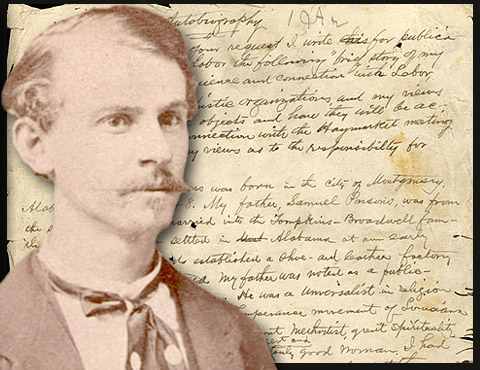 utobiography
your request I write this for publica
Labor the following "brief story of my
ience and connection with Labor
istic organizations, and my views
objects and how they will be ac-
nnection with the Haymarket meeting
y views as to the responsibility for
was born in the city of Montgomery,
Alaba 8. My father, Samuel Parsons, was from
the married into the Tompkins-Broadwell fam-
settled in Alabama at an early
established a shoe and leather factory
My father was noted as a public-
He was a Universalist in religion
temperance movement of Louisiana
Methodist, great Spirituality,
good woman. I had